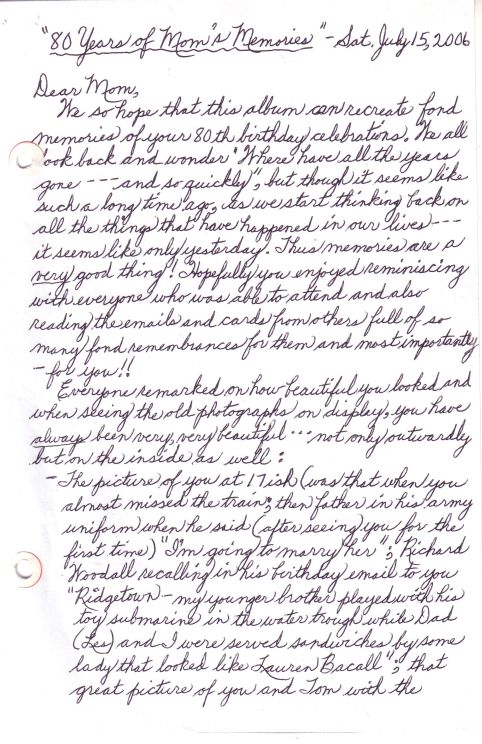 "80 Years of Mom's Memories" - Sat. July 15, 2006
Dear Mom,
We so hope that this album can recreate fond
memories of your 80th birthday celebrations. We all
look back and wonder "Where have all the years
gone --- and so quickly", but though it seems like
such a long time ago, as we start thinking back on
all the things that have happened in our lives ---
it seems like only yesterday. Thus memories are a
very good thing! Hopefully you enjoyed reminiscing
with everyone who was able to attend and also
reading the emails and cards from others full of so
many fond remembrances for them and most importantly
- for you!!
Everyone remarked on how beautiful you looked and
when seeing the old photographs on display, you have
always been very, very beautiful ... not only outwardly
but on the inside as well:
- The picture of you at 17 ish (was that when you
almost missed the train; then father in his army
uniform when he said (after seeing you for the
first time) "I'm going to marry her"; Richard
Woodall recalling in his birthday email to you
"Ridgetown - my younger brother played with his
toy submarine in the water trough while Dad
(Les) and I were served sandwiches by some
lady that looked like Lauren Bacall"; that
great picture of you and Tom with the